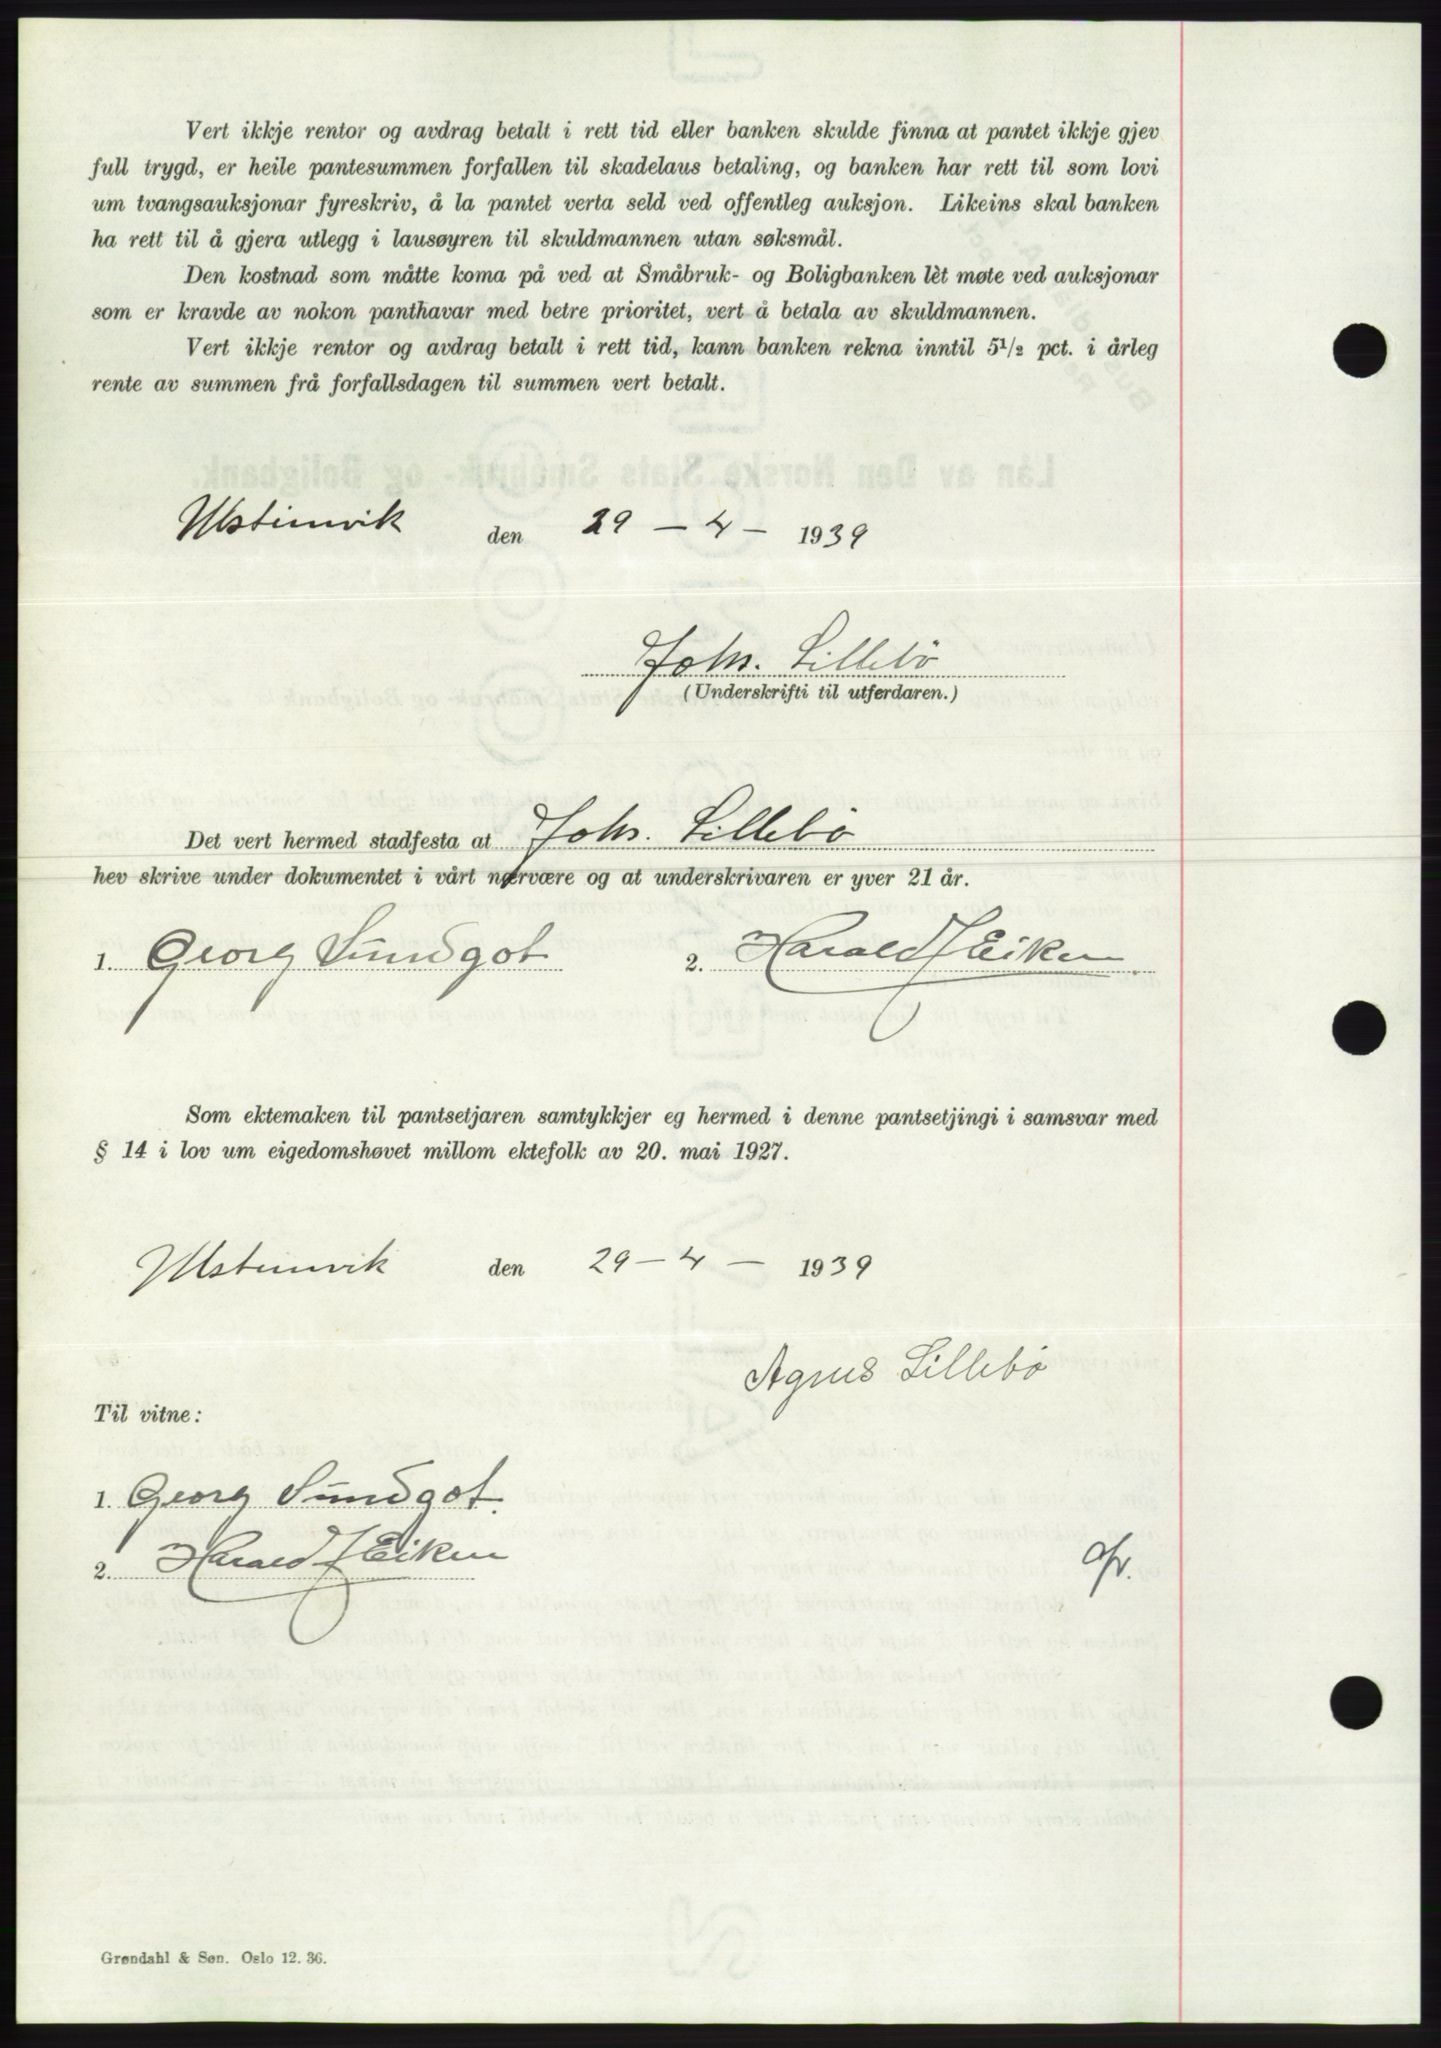 Vert ikkje rentor og avdrag betalt i rett tid eller banken skulde finna at pantet ikkje gjev
full trygd, er heile pantesummen forfallen til skadelaus betaling, og banken har rett til som lovi
um tvangsauksjonar fyreskriv, å la pantet verta seld ved offentleg auksjon. Likeins skal banken
ha rett til å gjera utlegg i lausøyren til skuldmannen utan søksmål.
Den kostnad som måtte koma på ved at Småbruk- og Boligbanken lèt møte ved auksjonar
som er kravde av nokon panthavar med betre prioritet, vert å betala av skuldmannen.
Vert ikkje rentor og avdrag betalt i rett tid, kann banken rekna inntil 5 1/2 pct. i årleg
rente av summen frå forfallsdagen til summen vert betalt.
Lån av Den Norske Stats Småbruk- og Boligbank.
Ulsteinvik den 29 - 4 - 1939
Johs. Lillebö
(Underskrifti til utferdaren.)
Det vert hermed stadfesta at Johs. Lillebö
hev skrive under dokumentet i vårt nærvære og at underskrivaren er yver 21 år.
1. Georg Sundgot 2. Harald J Eiken
Som ektemaken til pantsetjaren samtykkjer eg hermed i denne pantsetjingi i samsvar med
§ 14 i lov um eigedomshøvet millom ektefolk av 20. mai 1927.
Ulsteinvik den 29 - 4 - 1939
Agnes Lillebö
Til vitne:
1. Georg Sundgot.
2. Harald J Eiken
Grøndahl & Søn. Oslo 12. 36.